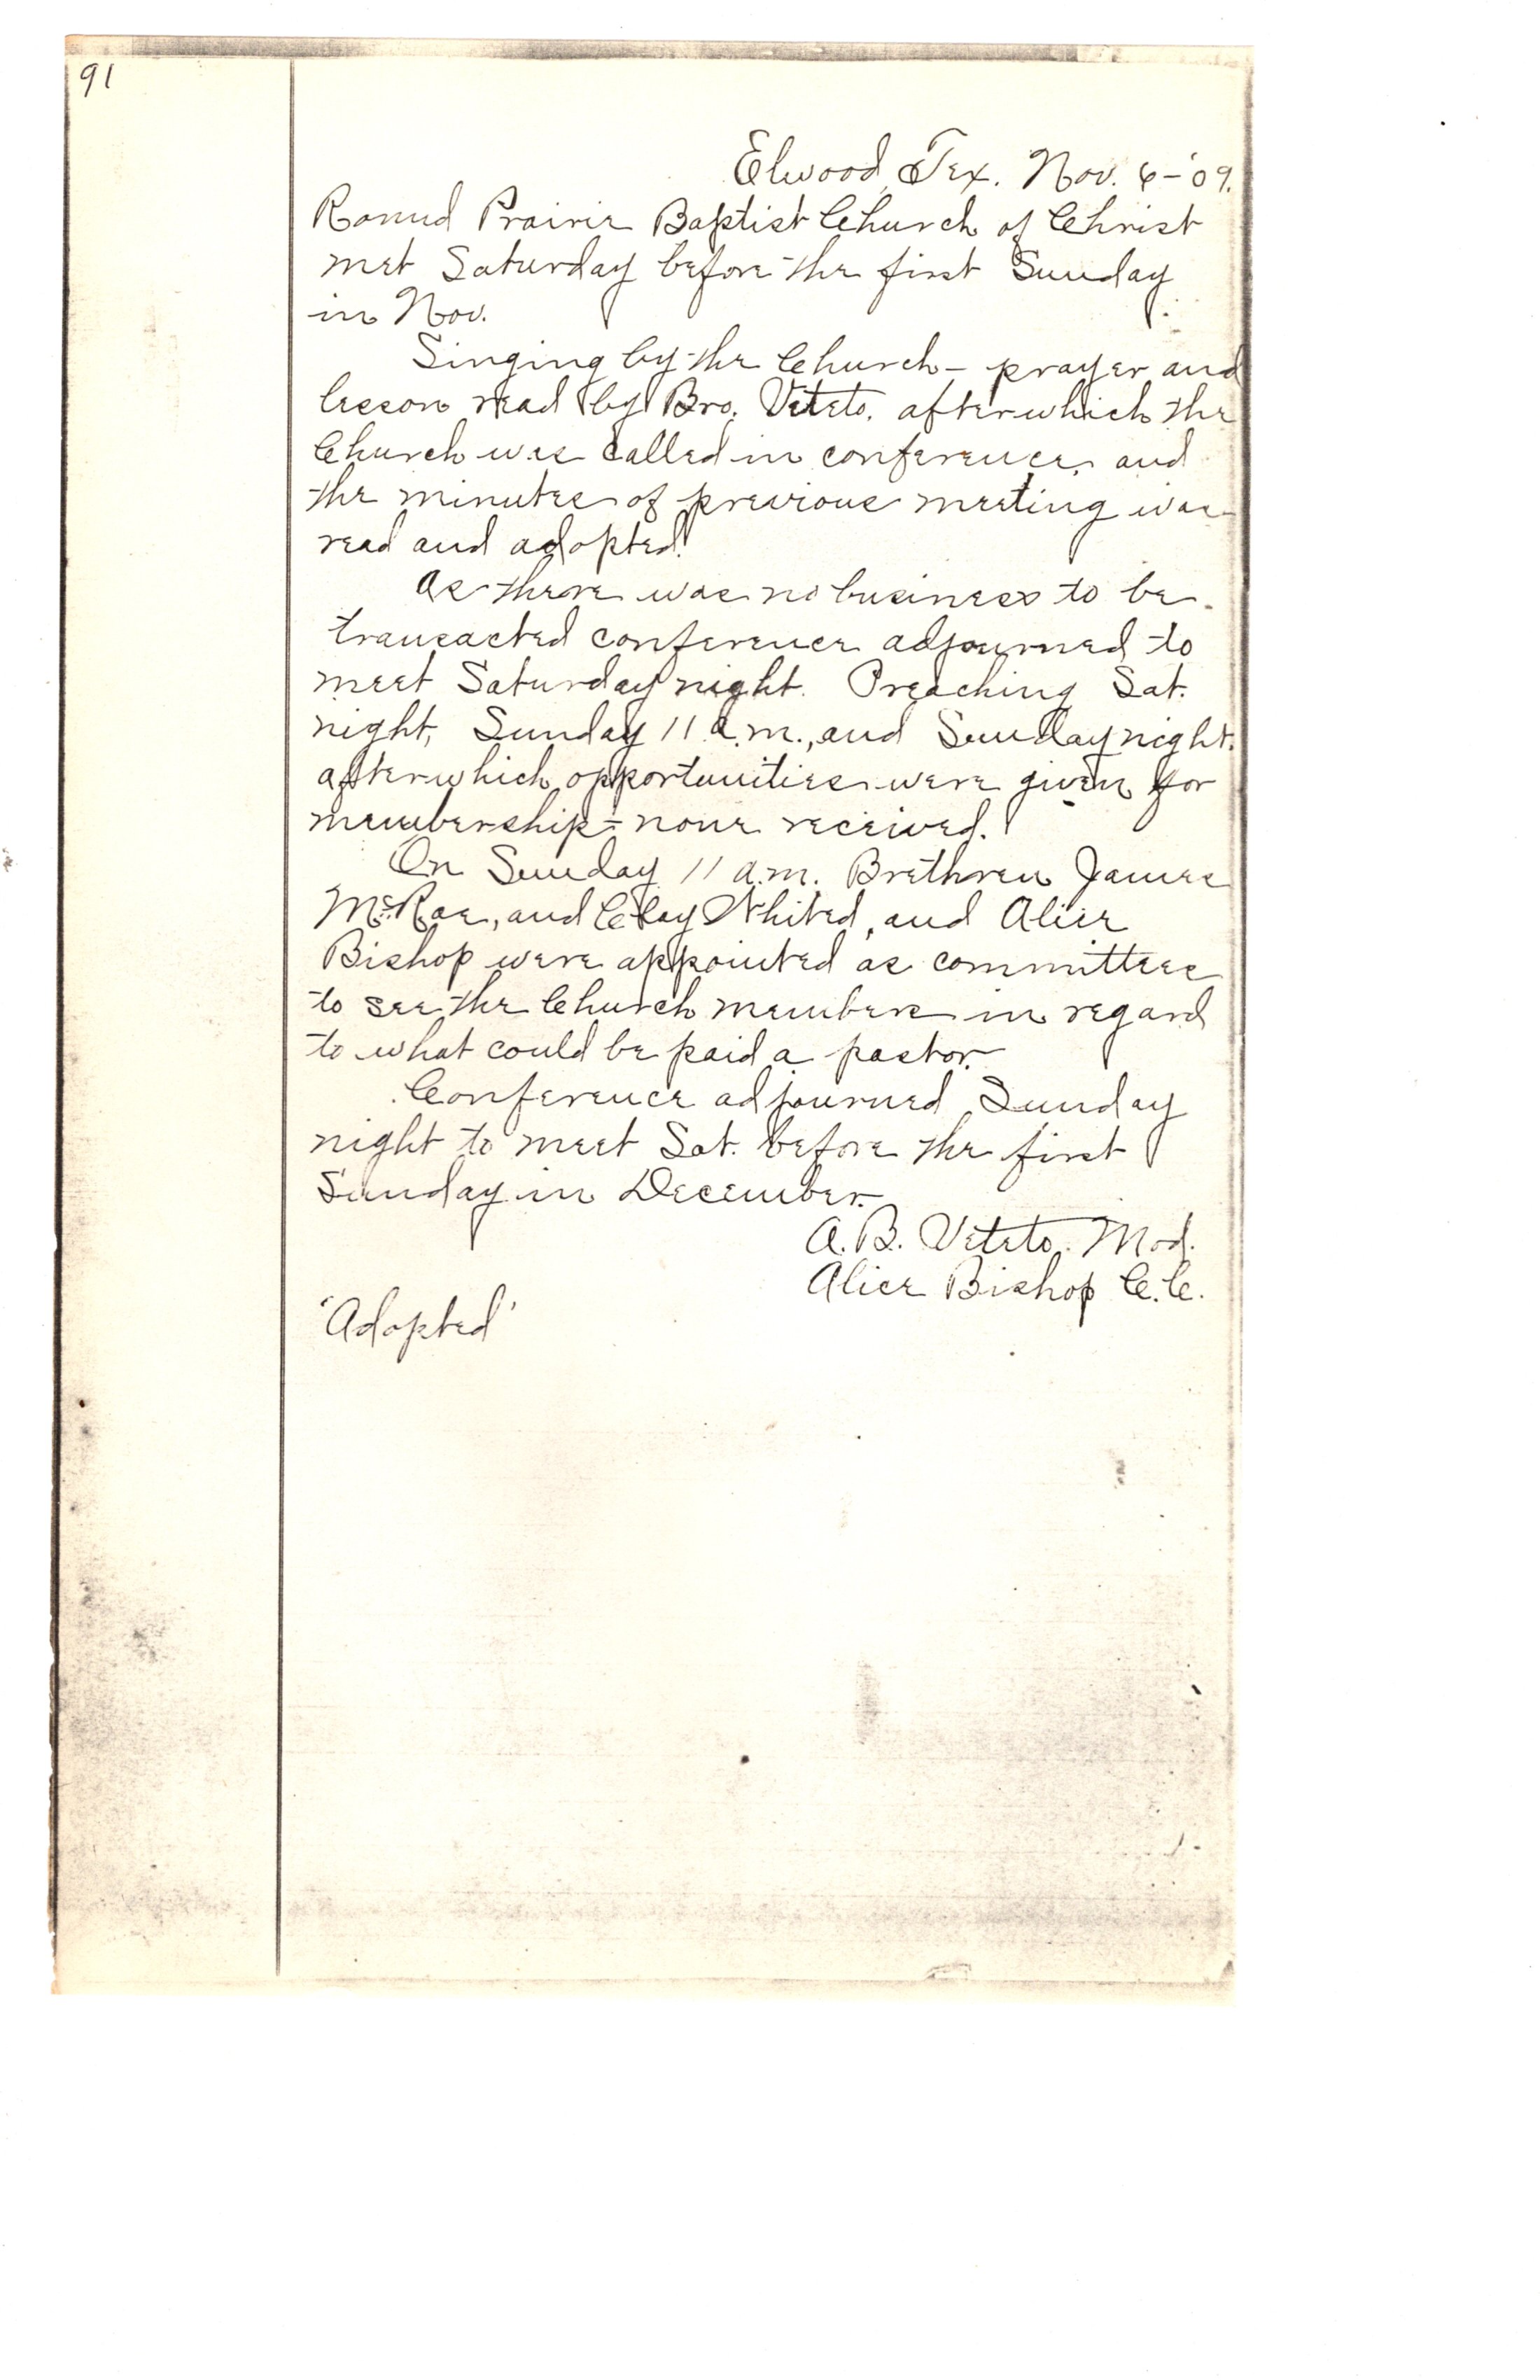 91
Elwood, Tex. Nov. 6-'09.
Round Prairie Baptist Church of Christ
met Saturday before the first Sunday
in Nov.
Singing by the Church - prayer and
lesson read by Bro. Veteto. after which the
Church was called in conference, and
the minutes of previous meeting was
read and adopted.
As there was no business to be
transacted conference adjourned to
meet Saturday night. Preaching Sat.
night, Sunday 11 a.m., and Sunday night.
after which opportunities were given for
membership - none received.
On Sunday 11 a.m. Brethren James
McRae, and Clay Whited, and Alice
Bishop were appointed as committees
to see the Church members in regard
to what could be paid a pastor.
Conference adjourned Sunday
night to meet Sat. before the first
Sunday in December.
A. B. Veteto. Mod.
Alice Bishop C.C.
'Adopted'